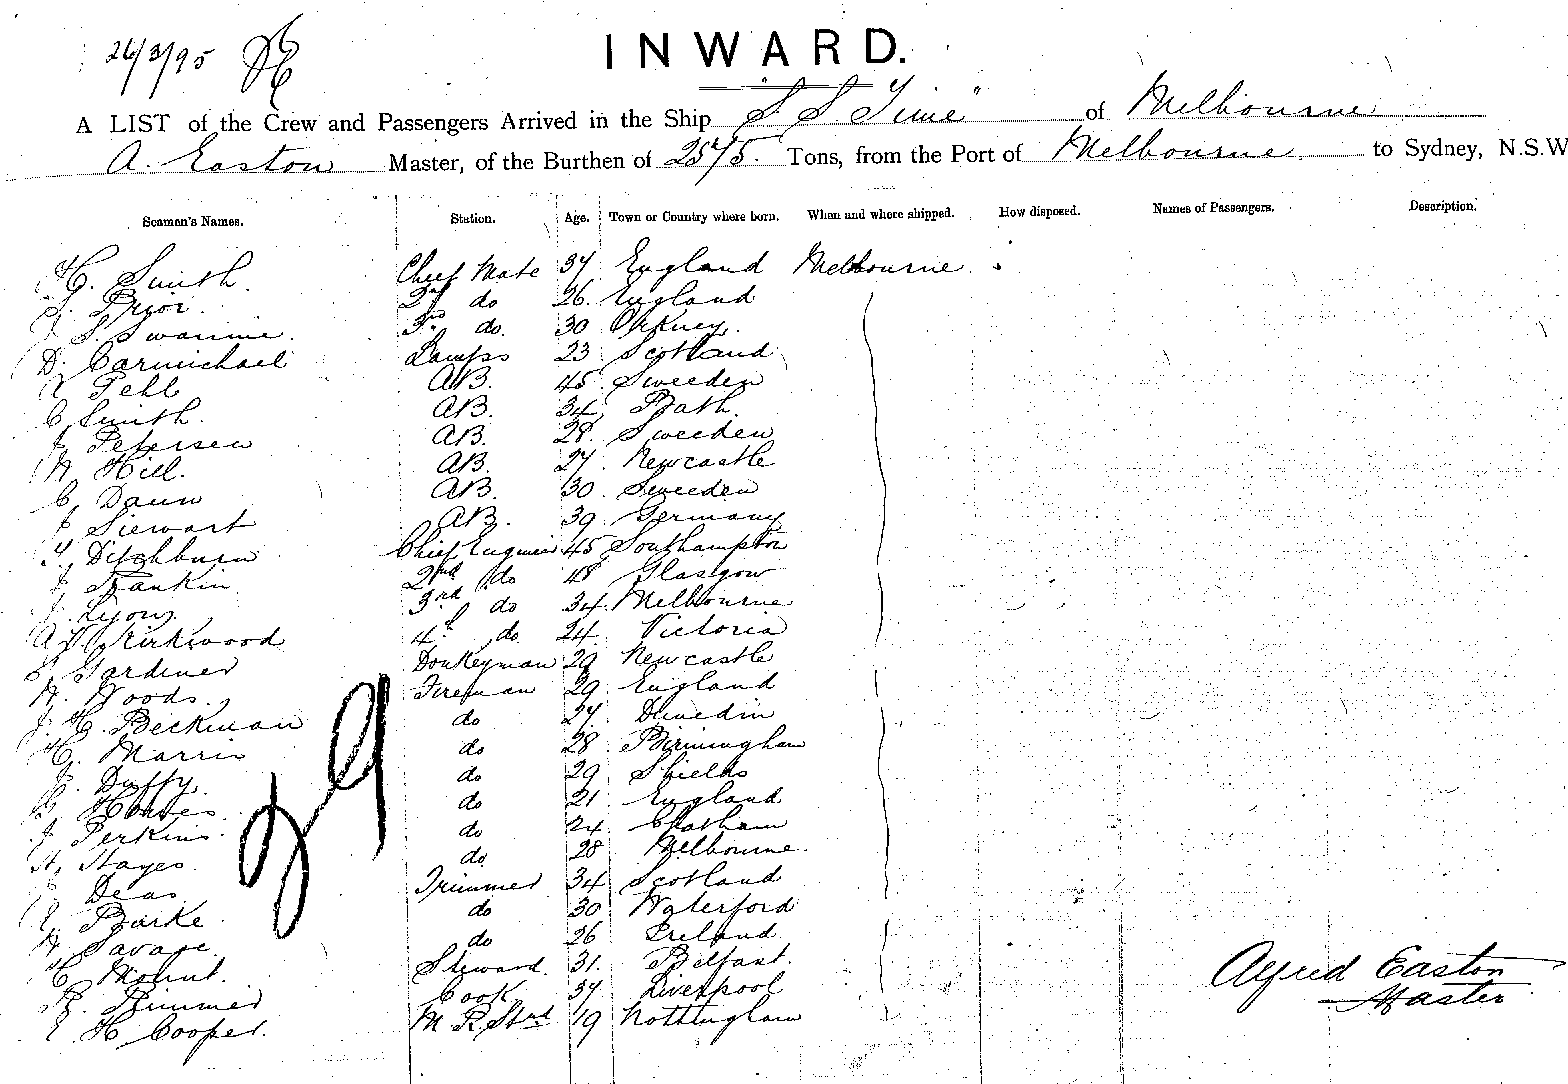 26/3/95
INWARD.
A LIST of the Crew and Passengers Arrived in the Ship "S. S Time" of Melbourne
A. Easton Master, of the Burthen of 2575 Tons, from the Port of Melbourne to Sydney, N.S.W
Seamen's Names. Station. Age. Town or Country where born. When and where shipped. How disposed. Names of Passengers. Description.
H. Smith. Chief Mate 37 England Melbourne
Pryor. 2nd do 26 England
J. S. Swannie. 3rd do. 30 Orkney.
D. Carmichael Lamps 23 Scotland
Fehl AB. 45 Sweeden
C Smith. AB. 34 Bath.
J. Petersen AB. 28. Sweeden
Hill. AB. 27 Newcastle
C. Daun AB. 30 Sweeden
J Siewart AB. 39 Germany
Ditchburn Chief Engineer 45 Southampton
J. Rankin 2nd do 48 Glasgow
J. Lyons. 3rd do 34 Melbourne
Kirkwood 4th do 24 Victoria
Gardiner Donkeyman 29 Newcastle
Woods. Fireman 29 England
J. H. Beckman do 27 Dunedin
H. Marris do 28 Birmingham
Duffy. do 29 Shields
do 21 England
J Perkins do 24 Chatham
H. Hayes do 28 Melbourne.
Deas Trimmer 34 Scotland
Burke do 30 Waterford
Savage do 26 Ireland
Mount. Steward. 31. Belfast.
Cook 37 Liverpool
H Cooper. M. R. Stwd 19 Nottingham
Alfred Easton
Master